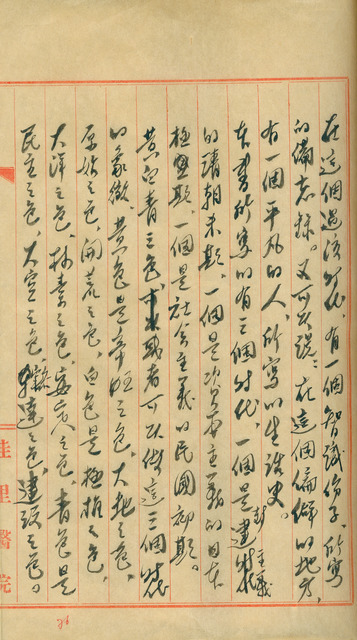 在這個過渡時代，有一個智識份子，所寫
的備忘錄。又可以說：在這個偏僻的地方，
有一個平凡的人，所寫的生活史。
本書所寫的有三個時代，一個是封建主義時代
的清朝末期，一個是資本主義的日本
極盛期，一個是社會主義的民國初期。
黃白青三色或者可以做這三個時代
的象徵，黃色是帝旺之色、大地之色、
原始之色、開荒之色，白色是極之色、
大洋之色、科學之色、之色，青色是
民主之色、大空之色、達之色、建設之色。
佳里醫院